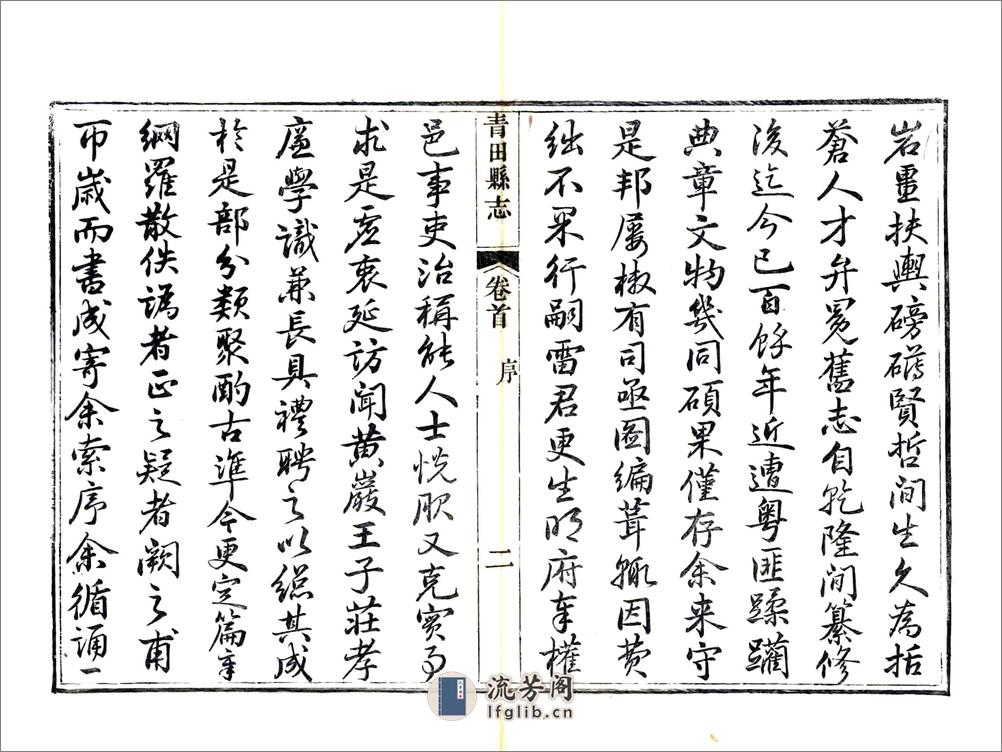 岩畺扶輿磅礴賢哲間生久為括
蒼人才弁冕舊志自乾隆間纂修
後迄今已百餘年近遭粵匪蹂躪
典章文物幾同碩果僅存余来守
是邦屢檄有司亟圖編葺輒因費
絀不果行嗣雷君更生明府奉權
青田縣志
卷首
序
二
邑事吏治稱能人士悅服又克實事
求是虛衷延訪聞黃巖王子莊孝
廉學識兼長具禮聘之以總其成
於是部分類聚酌古準今更定篇章
網羅散佚譌者正之疑者闕之甫
帀歲而書成寄余索序余循誦一
流芳阁
lfglib.cn